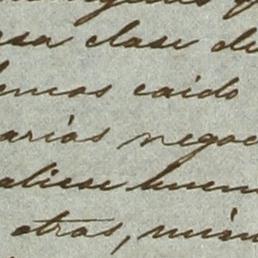 esa clase de
hemos caido
varios negoc
aliese buen
otras, mien